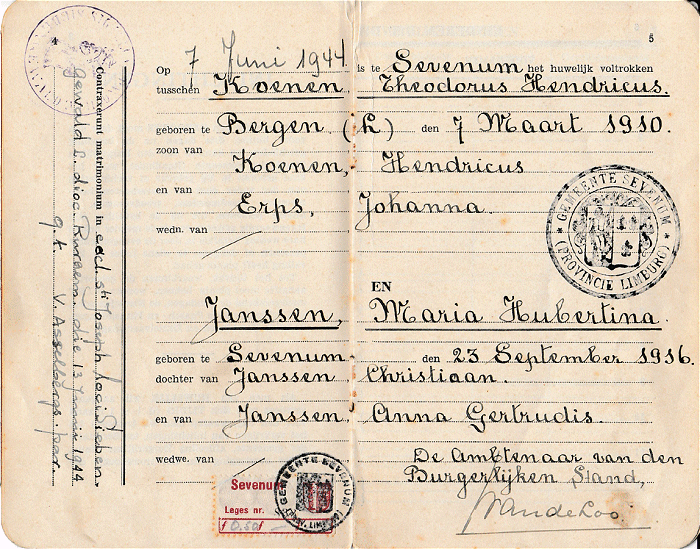 4
5
Op 7 Juni 1944 is te Sevenum het huwelijk voltrokken
tusschen Koenen, Theodorus Hendricus.
geboren te Bergen (L) den 7 Maart 1910.
zoon van
Koenen, Hendricus
en van
Erps, Johanna.
wedn. van
EN
Janssen, Maria Hubertina.
geboren te Sevenum den 23 September 1916.
dochter van Janssen Christiaan.
en van Janssen, Anna Gertrudis.
wedwe. van
De Ambtenaar van den
Burgerlijken Stand,
VandeLoo
GEMEENTE SEVENUM
(PROVINCIE LIMBURG)
Sevenum
Leges nr.
0.50
GEMEENTE SEVENUM
Contraxerunt matrimonium in eccl. sti Joseph
die 13 Junii 1944
q.t. V. Asselbergs. par.